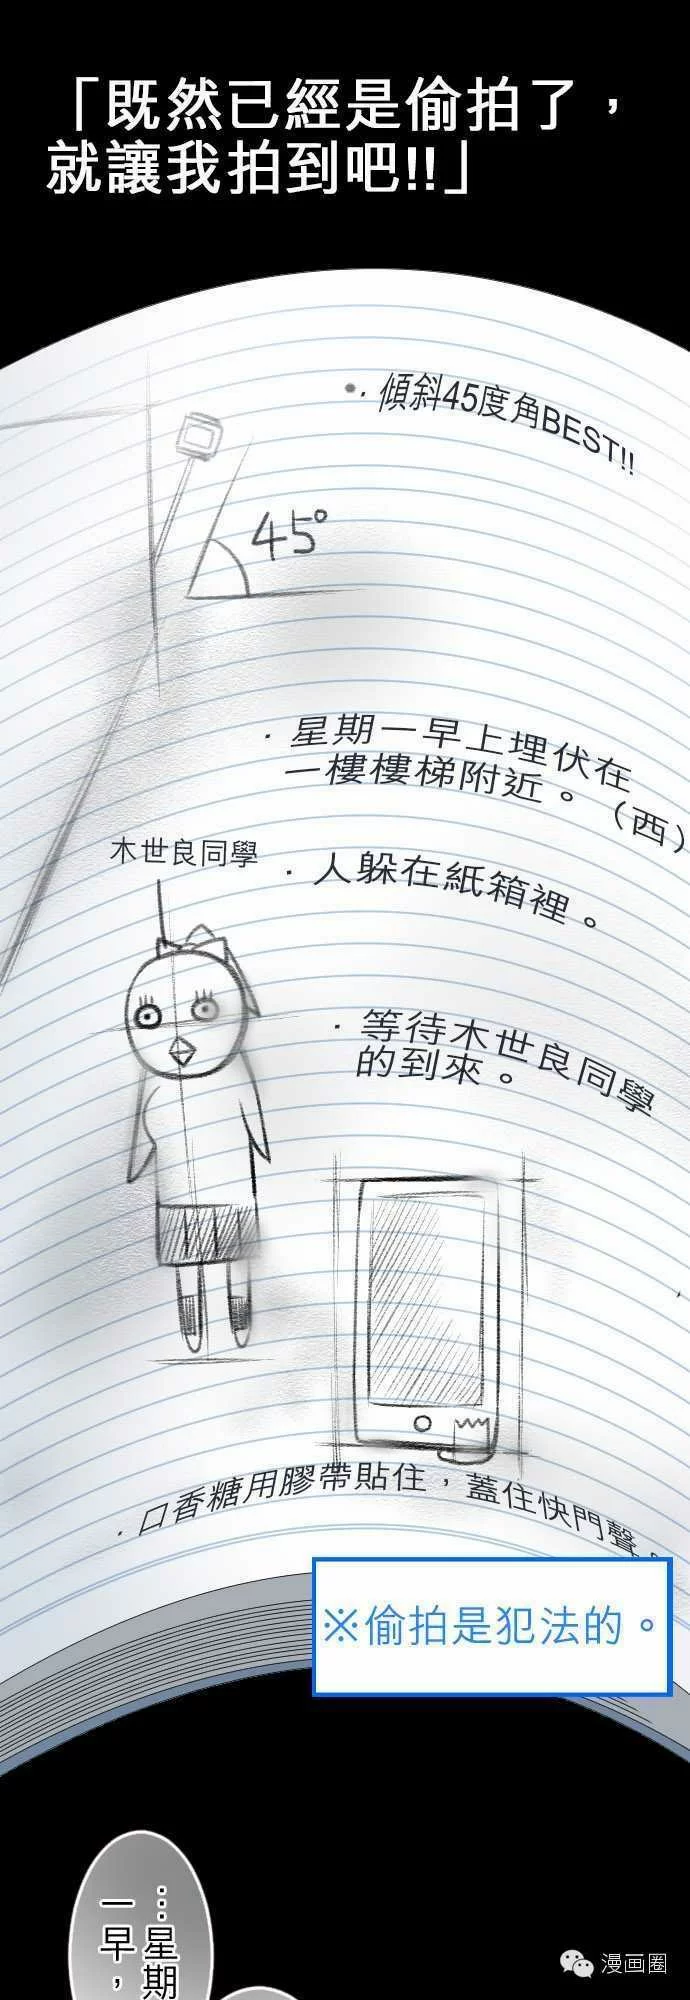 「既然已經是偷拍了，
就讓我拍到吧!!」
·傾斜45度角BEST!!
45°
·星期一早上埋伏在
一樓樓梯附近。（西）
木世良同學
·人躲在紙箱裡。
·等待木世良同學
的到來。
·口香糖用膠帶貼住，蓋住快門聲。
※偷拍是犯法的。
…星期
一早，
漫画圈